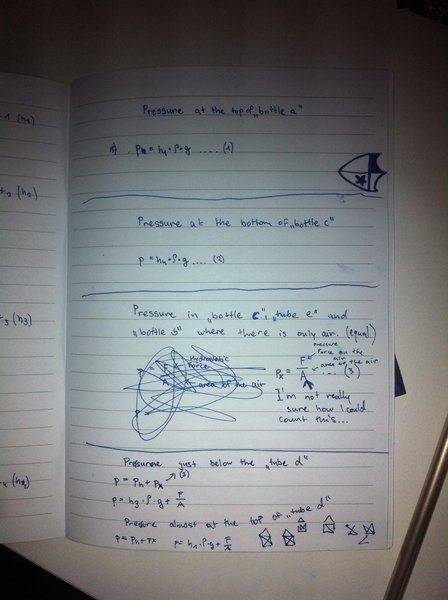 1 (h1)
2 (h2)
3 (h3)
Pressure at the top of „bottle a"
= h₁ · ρ · g ..... (1)
Pressure at the bottom of „bottle c"
p = h₄ · ρ · g .... (2)
Pressure in „bottle c", „tube e" and
„bottle b" where there is only air. (equal)
pressure
force on the
air
Hydrostatic
force
pₓ = F/A ..... (3)
area of the air
area of the air
I'm not really
sure how I could
count this...
Pressure just below the „tube d"
(3)
p = pₕ + pₓ
p = h₃ · ρ · g + F/A
Pressure almost at the top of „tube d"
p = pₕ + pₓ p = h₄ · ρ · g + F/A